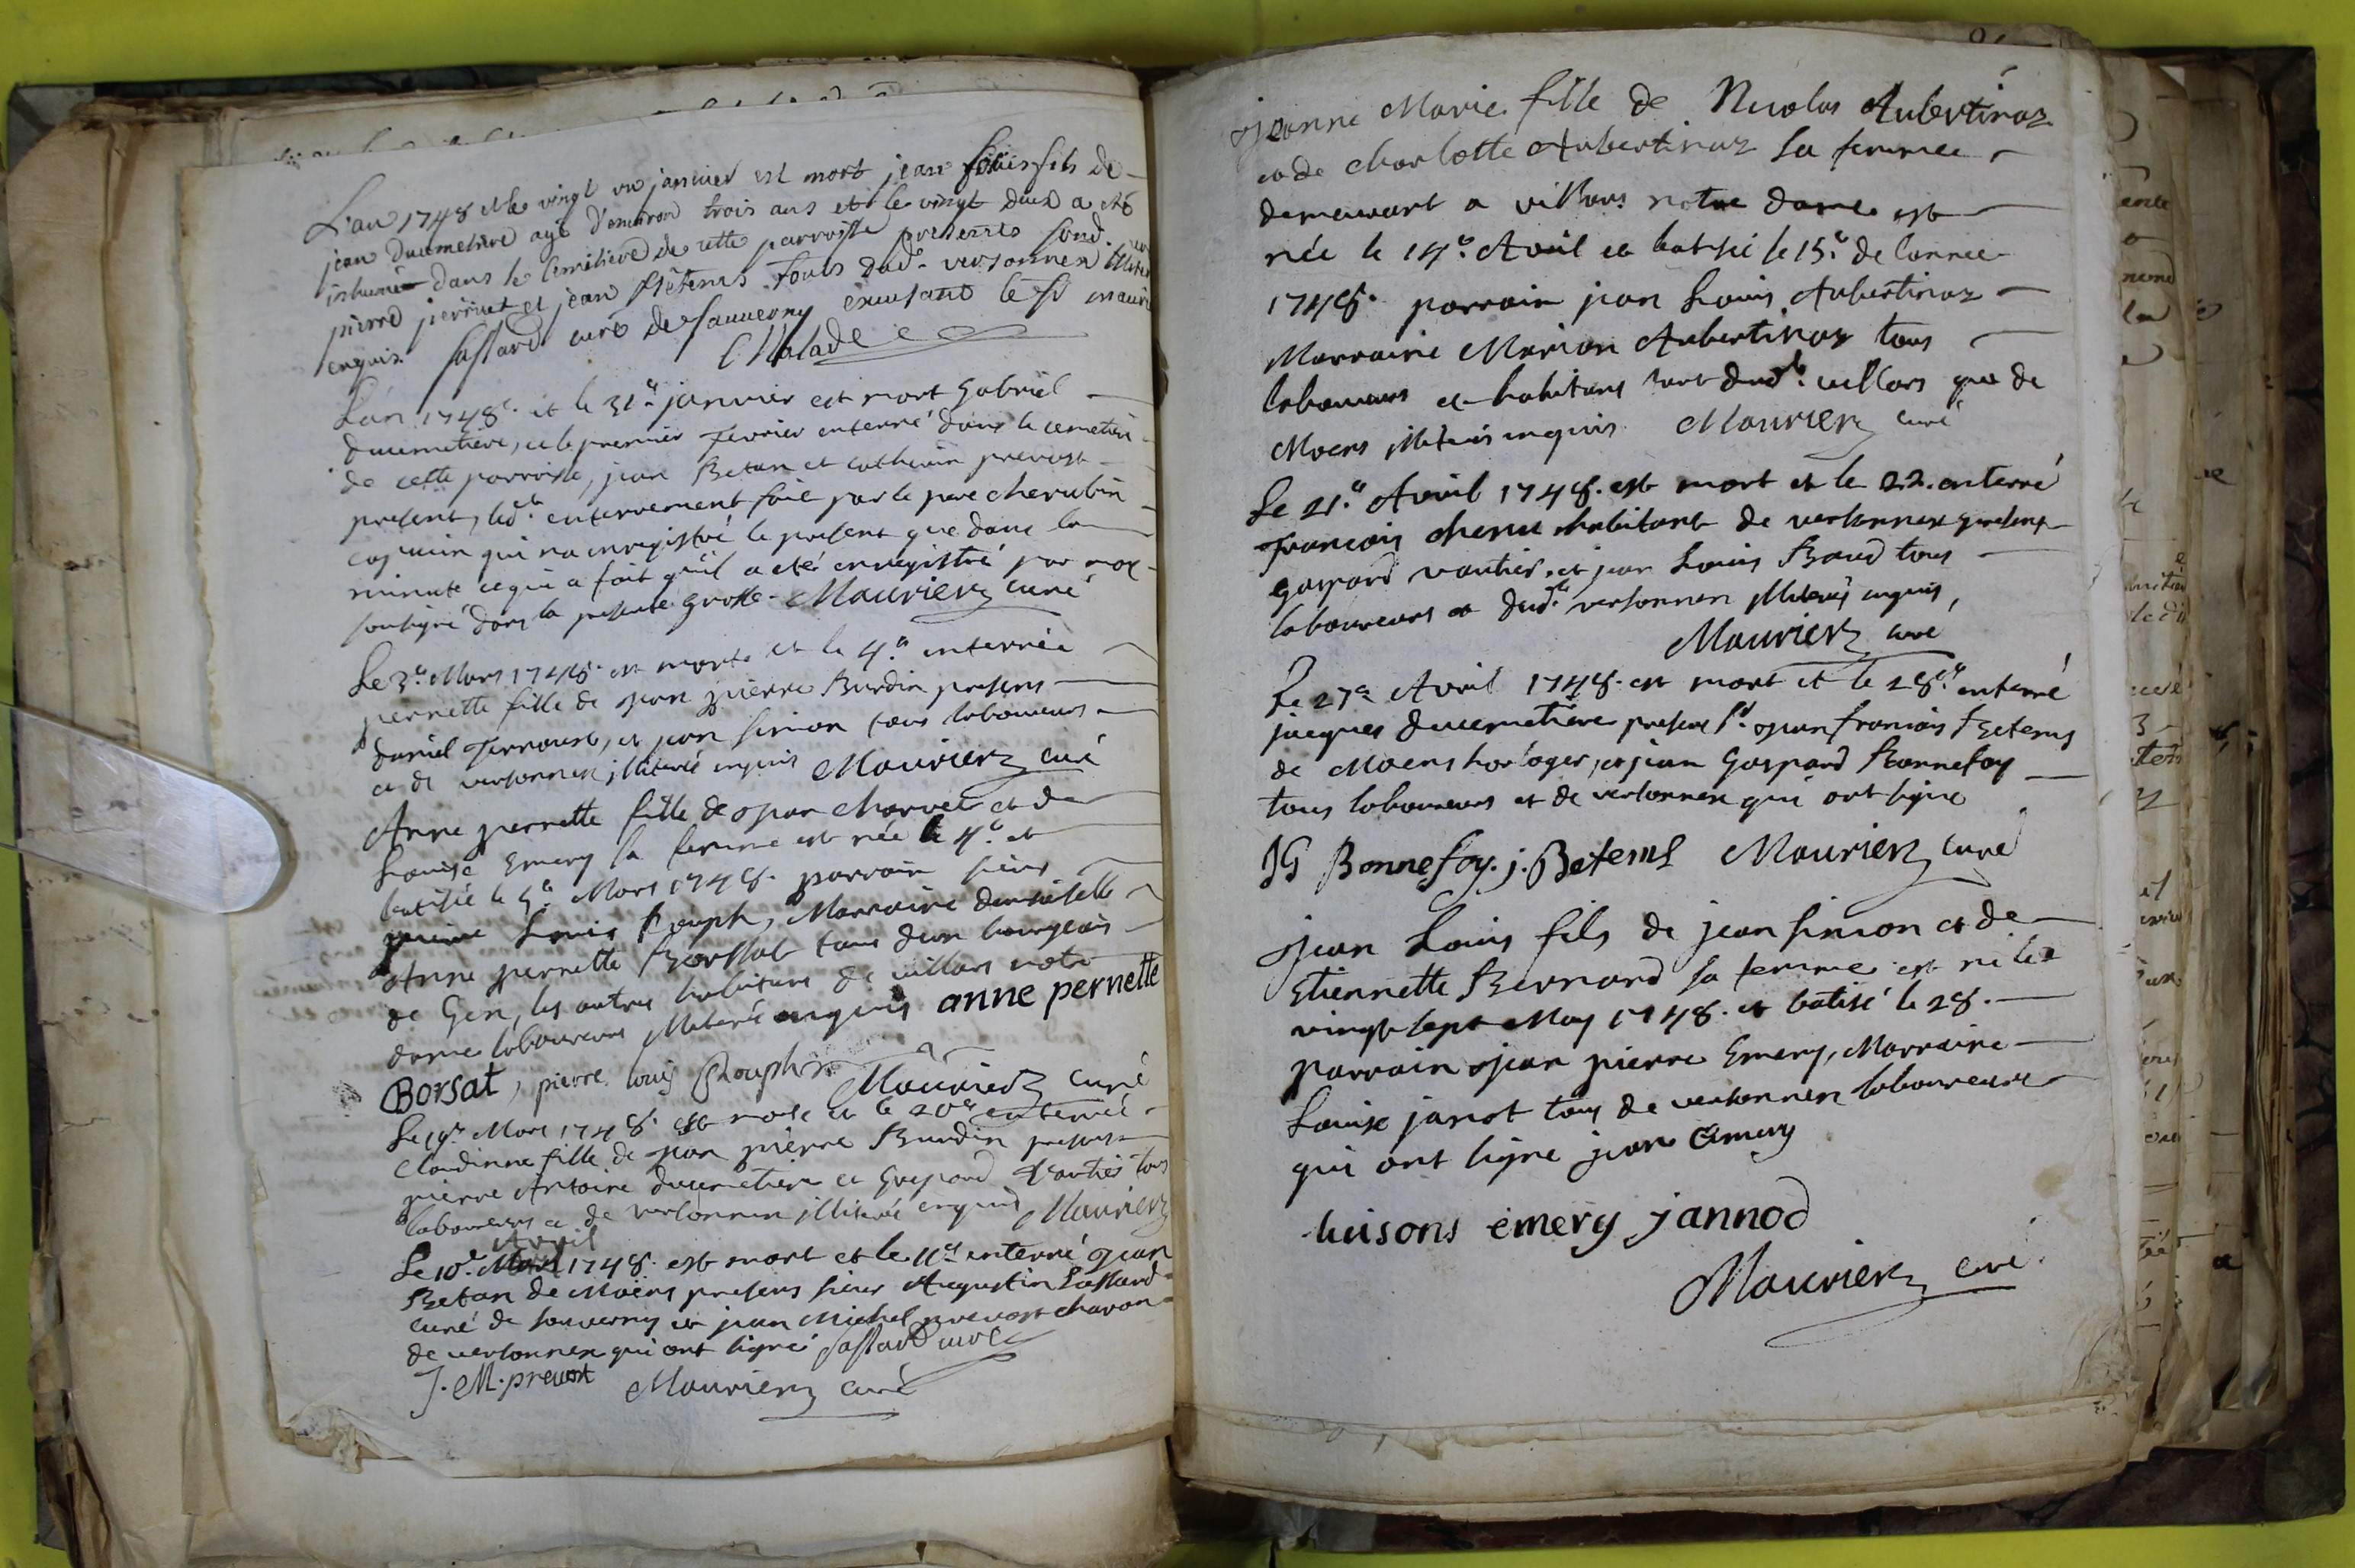 L'an 1748 et le vingt un janvier est mort jean louis fils de
jean ducimetiere agé d'environ trois ans et le vingt deux a eté
inhumé dans le cimetiere de cette parroisse presents
pierre perrinet et jean Betems tous dud. versonnex
enquis Lassard curé de Sauverny excusant le Sr
Malade
L'an 1748. et le 31e janvier est mort Gabriel
ducimetiere, et le premier fevrier enterré dans le cemetiere
de cette parroisse, jean Betan et catherin prevost
present, led.t enterrement fait par le pere cherubin
capucin qui n'a enregistré le present que dans la
minute ce qui a fait qu'il a eté enregistré par moy
soussigné dans la presente grosse. Maurier curé
Le 3e Mars 1748. est morte et le 4.e enterrée
pernette fille de jean pierre Burdin presens
daniel et jean simon tous laboureurs
et de versonnex illiterés enquis Maurier curé
Anne pernette fille de jean charvet et de
Louise Emery sa femme est née le 4.e et
batisée le 5.e Mars 1748. parrain sieur
pierre Louis Rouph, Marraine demoiselle
Anne pernette Borssat tous deux bourgeois
de Gex, les autres habitans de villars notre
dame laboureurs illiterés enquis anne pernette
Borsat, pierre louis Rouph Maurier curé
Le 19e Mars 1748. est morte et le 20e enterrée
Claudinne fille de jean pierre Burdin presens
pierre Antoine ducimetiere et Gaspard Vautier tous
laboureurs et de versonnex illiterés enquis Maurier
Avril
Le 10.e Mars 1748. est mort et le 11.e enterré jean
Betan de Moëns presens sieur Augustin Lassard
curé de sauverny et jean Michel prevost charon
de versonnex qui ont signé Lassard curé
J. M. prevost Maurier curé
jeanne Marie fille de Nicolas Aubertinaz
et de charlotte Aubertinaz sa femme
demeurant a villars notre dame est
née le 14.e Avril et batisé le 15.e de l'année
1748. parrain jean Louis Aubertinaz
Marraine Marion Aubertinaz tous
laboureurs et habitans tant dud.t villars que de
Moens illiterés enquis Maurier curé
Le 21.e Avril 1748. est mort et le 22. enterré
François chenu habitant de versonnex presens
gaspard vautier, et jean Louis Baud tous
laboureurs et dud.t versonnex illiterés enquis,
Maurier curé
Le 27e Avril 1748. est mort et le 28.e enterré
jacques ducemetiere presens Sr jean francois Betems
de Moens horloger, et jean Gaspard Bonnefoy
tous laboureurs et de versonnex qui ont signé
JG Bonnefoy. j. Betems Maurier curé
jean Louis fils de jean simon et de
Etiennette Bernard sa femme est né le
vingt sept May 1748. et batisé le 28.
parrain jean pierre Emery, Marraine
Louise janot tous de versonnex laboureurs
qui ont signé jean Emery
luisons emery jannod
Maurier curé.